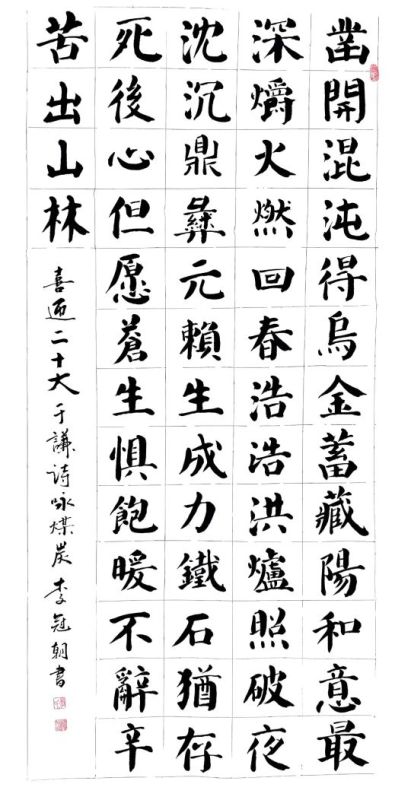 凿開混沌得烏金蓄藏陽和意最
深爝火燃回春浩浩洪爐照破夜
沈沉鼎彝元賴生成力鐵石猶存
死後心但愿蒼生惧飽暖不辭辛
苦出山林
喜迎二十大于謙詩咏煤炭李冠朝書